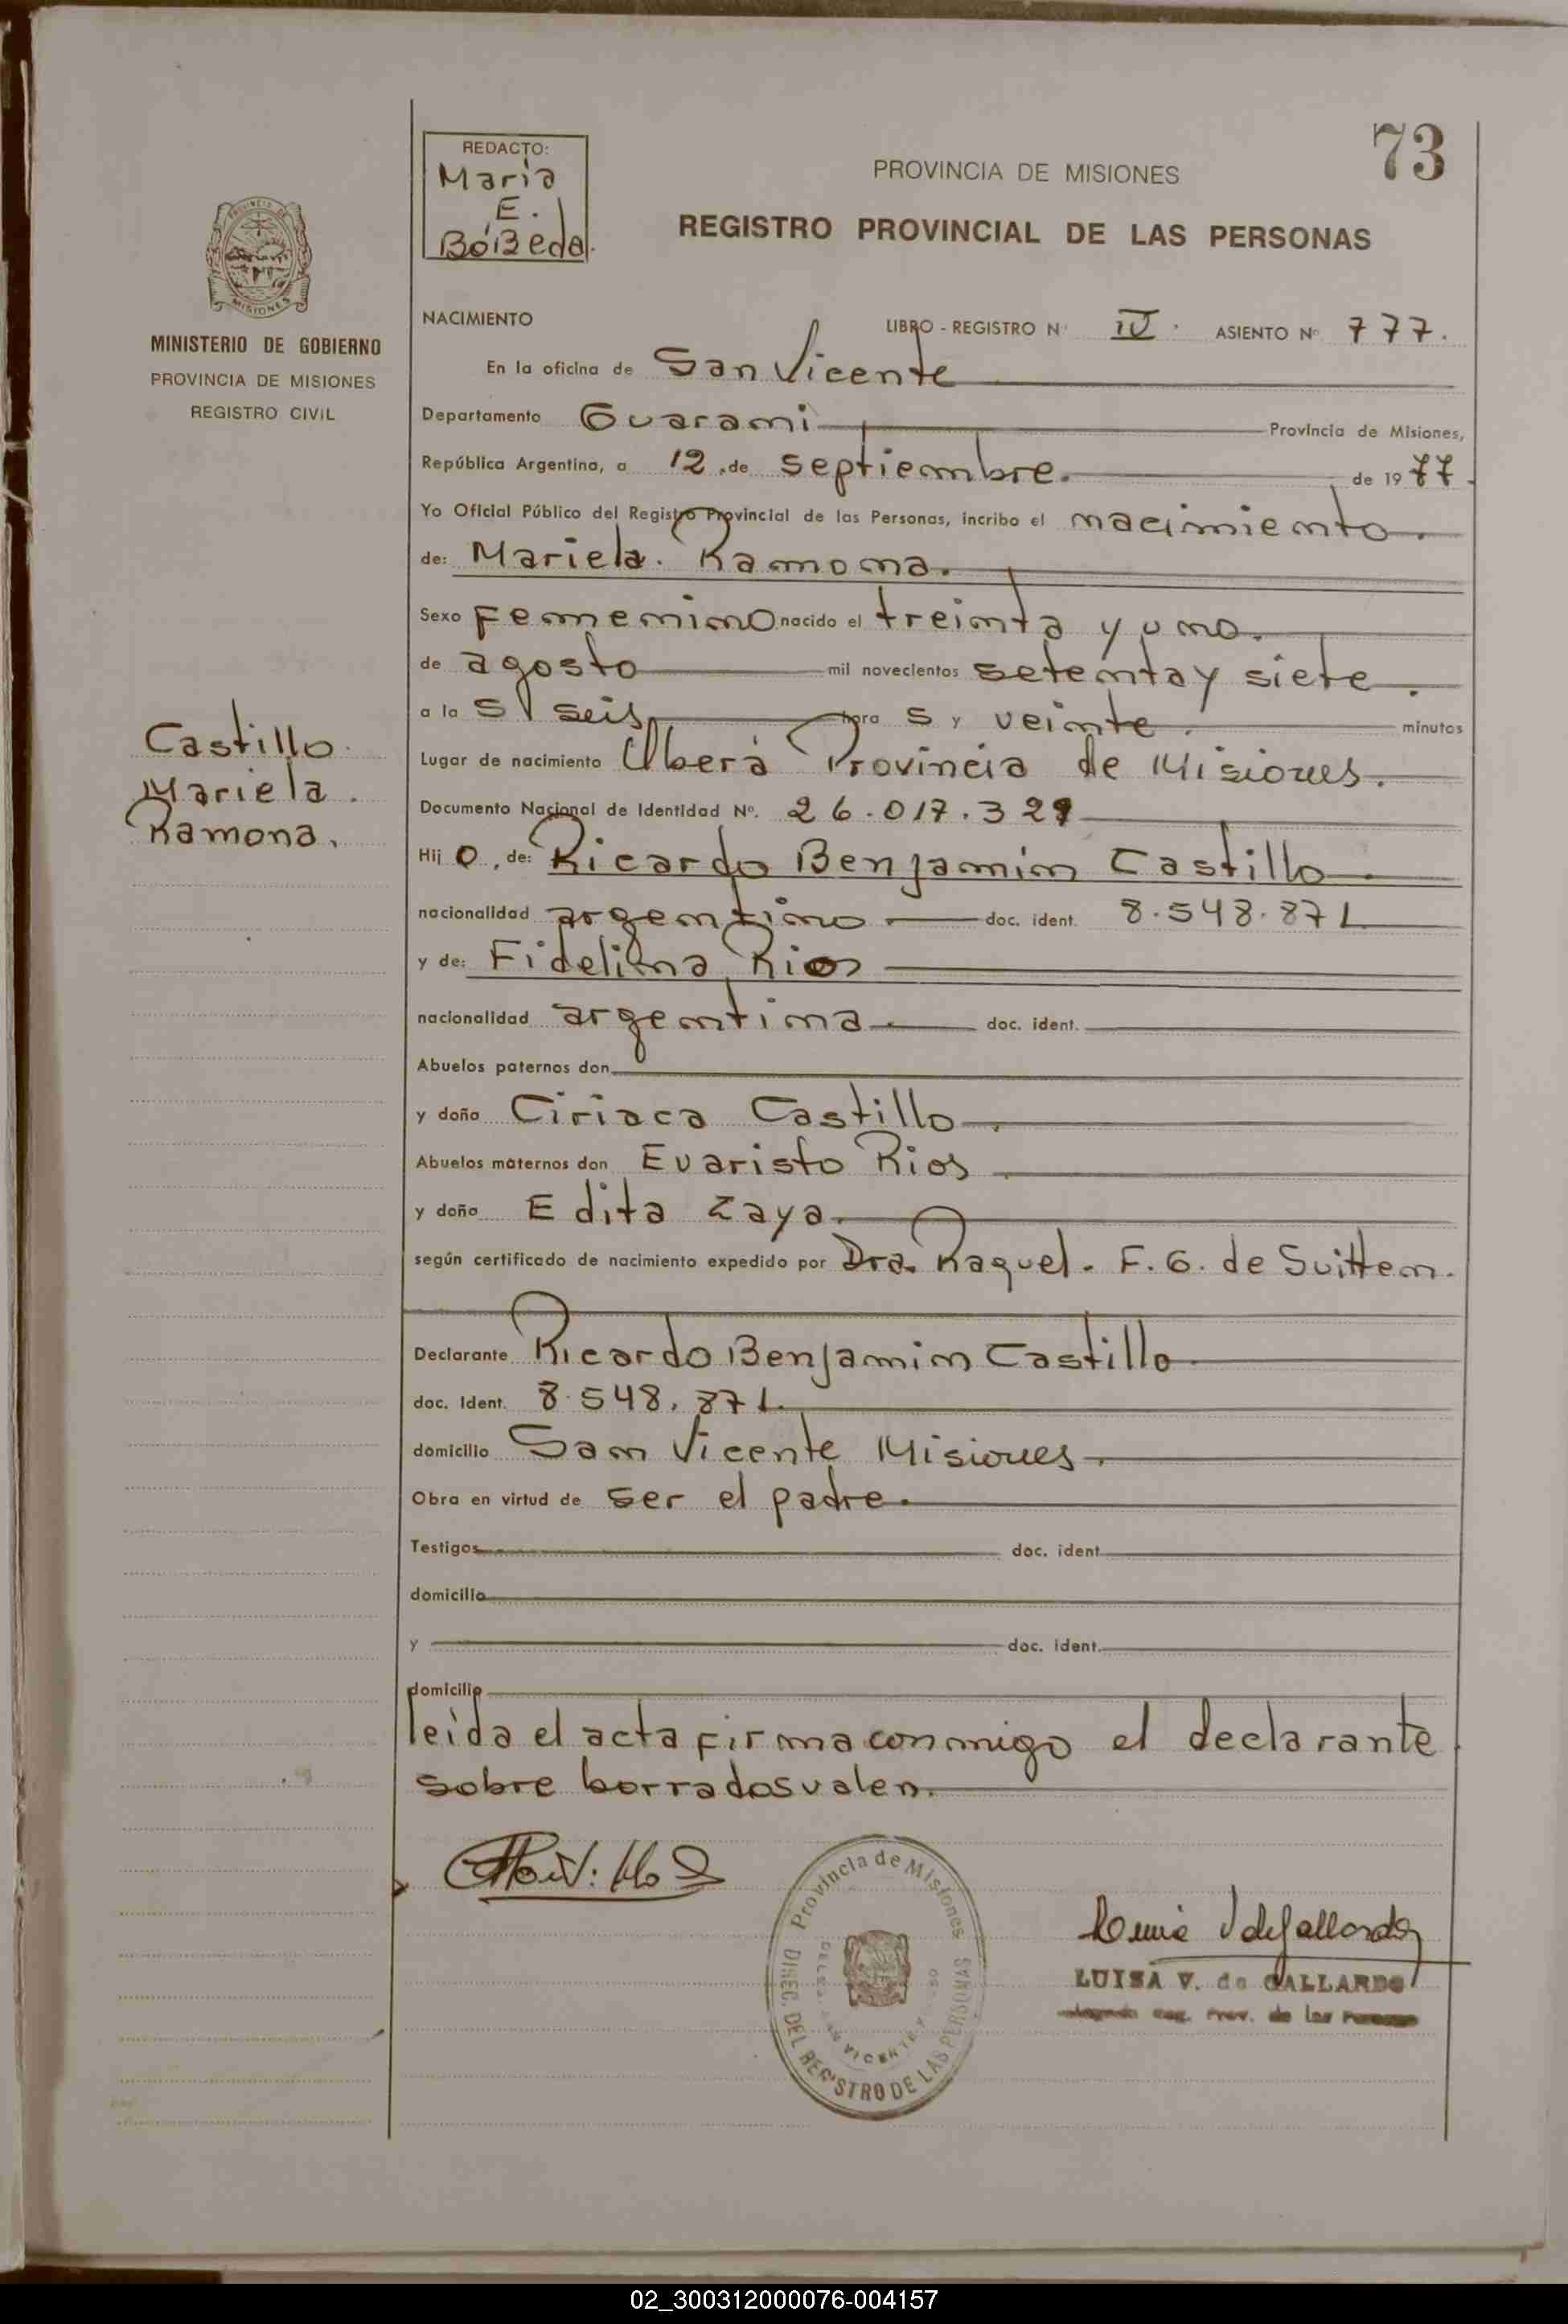 73
REDACTO:
Maria
E.
BóBeda.
PROVINCIA DE MISIONES
REGISTRO PROVINCIAL DE LAS PERSONAS
PROVINCIA DE
MISIONES
MINISTERIO DE GOBIERNO
PROVINCIA DE MISIONES
REGISTRO CIVIL
NACIMIENTO
LIBRO - REGISTRO Nº IV. ASIENTO Nº 777.
En la oficina de San Vicente
Departamento Guarani Provincia de Misiones,
República Argentina, a 12 de septiembre. de 1977.
Yo Oficial Público del Registro Provincial de las Personas, incribo el nacimiento.
de: Mariela. Ramona.
Sexo Femenino nacido el treinta y uno.
de agosto mil novecientos setenta y siete.
a la s seis hora s y veinte. minutos
Castillo
Mariela.
Ramona.
Lugar de nacimiento Oberá Provincia de Misiones.
Documento Nacional de Identidad Nº. 26.017.329
Hij o, de: Ricardo Benjamin Castillo
nacionalidad argentino doc. ident. 8.548.871
y de: Fidelina Rios
nacionalidad argentina doc. ident.
Abuelos paternos don
y doña Ciriaca Castillo
Abuelos maternos don Evaristo Rios
y doña Edita Zaya.
según certificado de nacimiento expedido por Dra. Raquel. F. G. de Suitten.
Declarante Ricardo Benjamin Castillo
doc. Ident. 8.548.871.
domicilio San Vicente Misiones.
Obra en virtud de ser el padre.
Testigos doc. ident.
domicilio
y doc. ident.
domicilio
leida el acta firma conmigo el declarante.
sobre borrados valen.
Provincia de Misiones
DIREC. DEL REGISTRO DE LAS PERSONAS
LUISA V. de GALLARDO
Reg. Prov. de las Personas
02_300312000076-004157